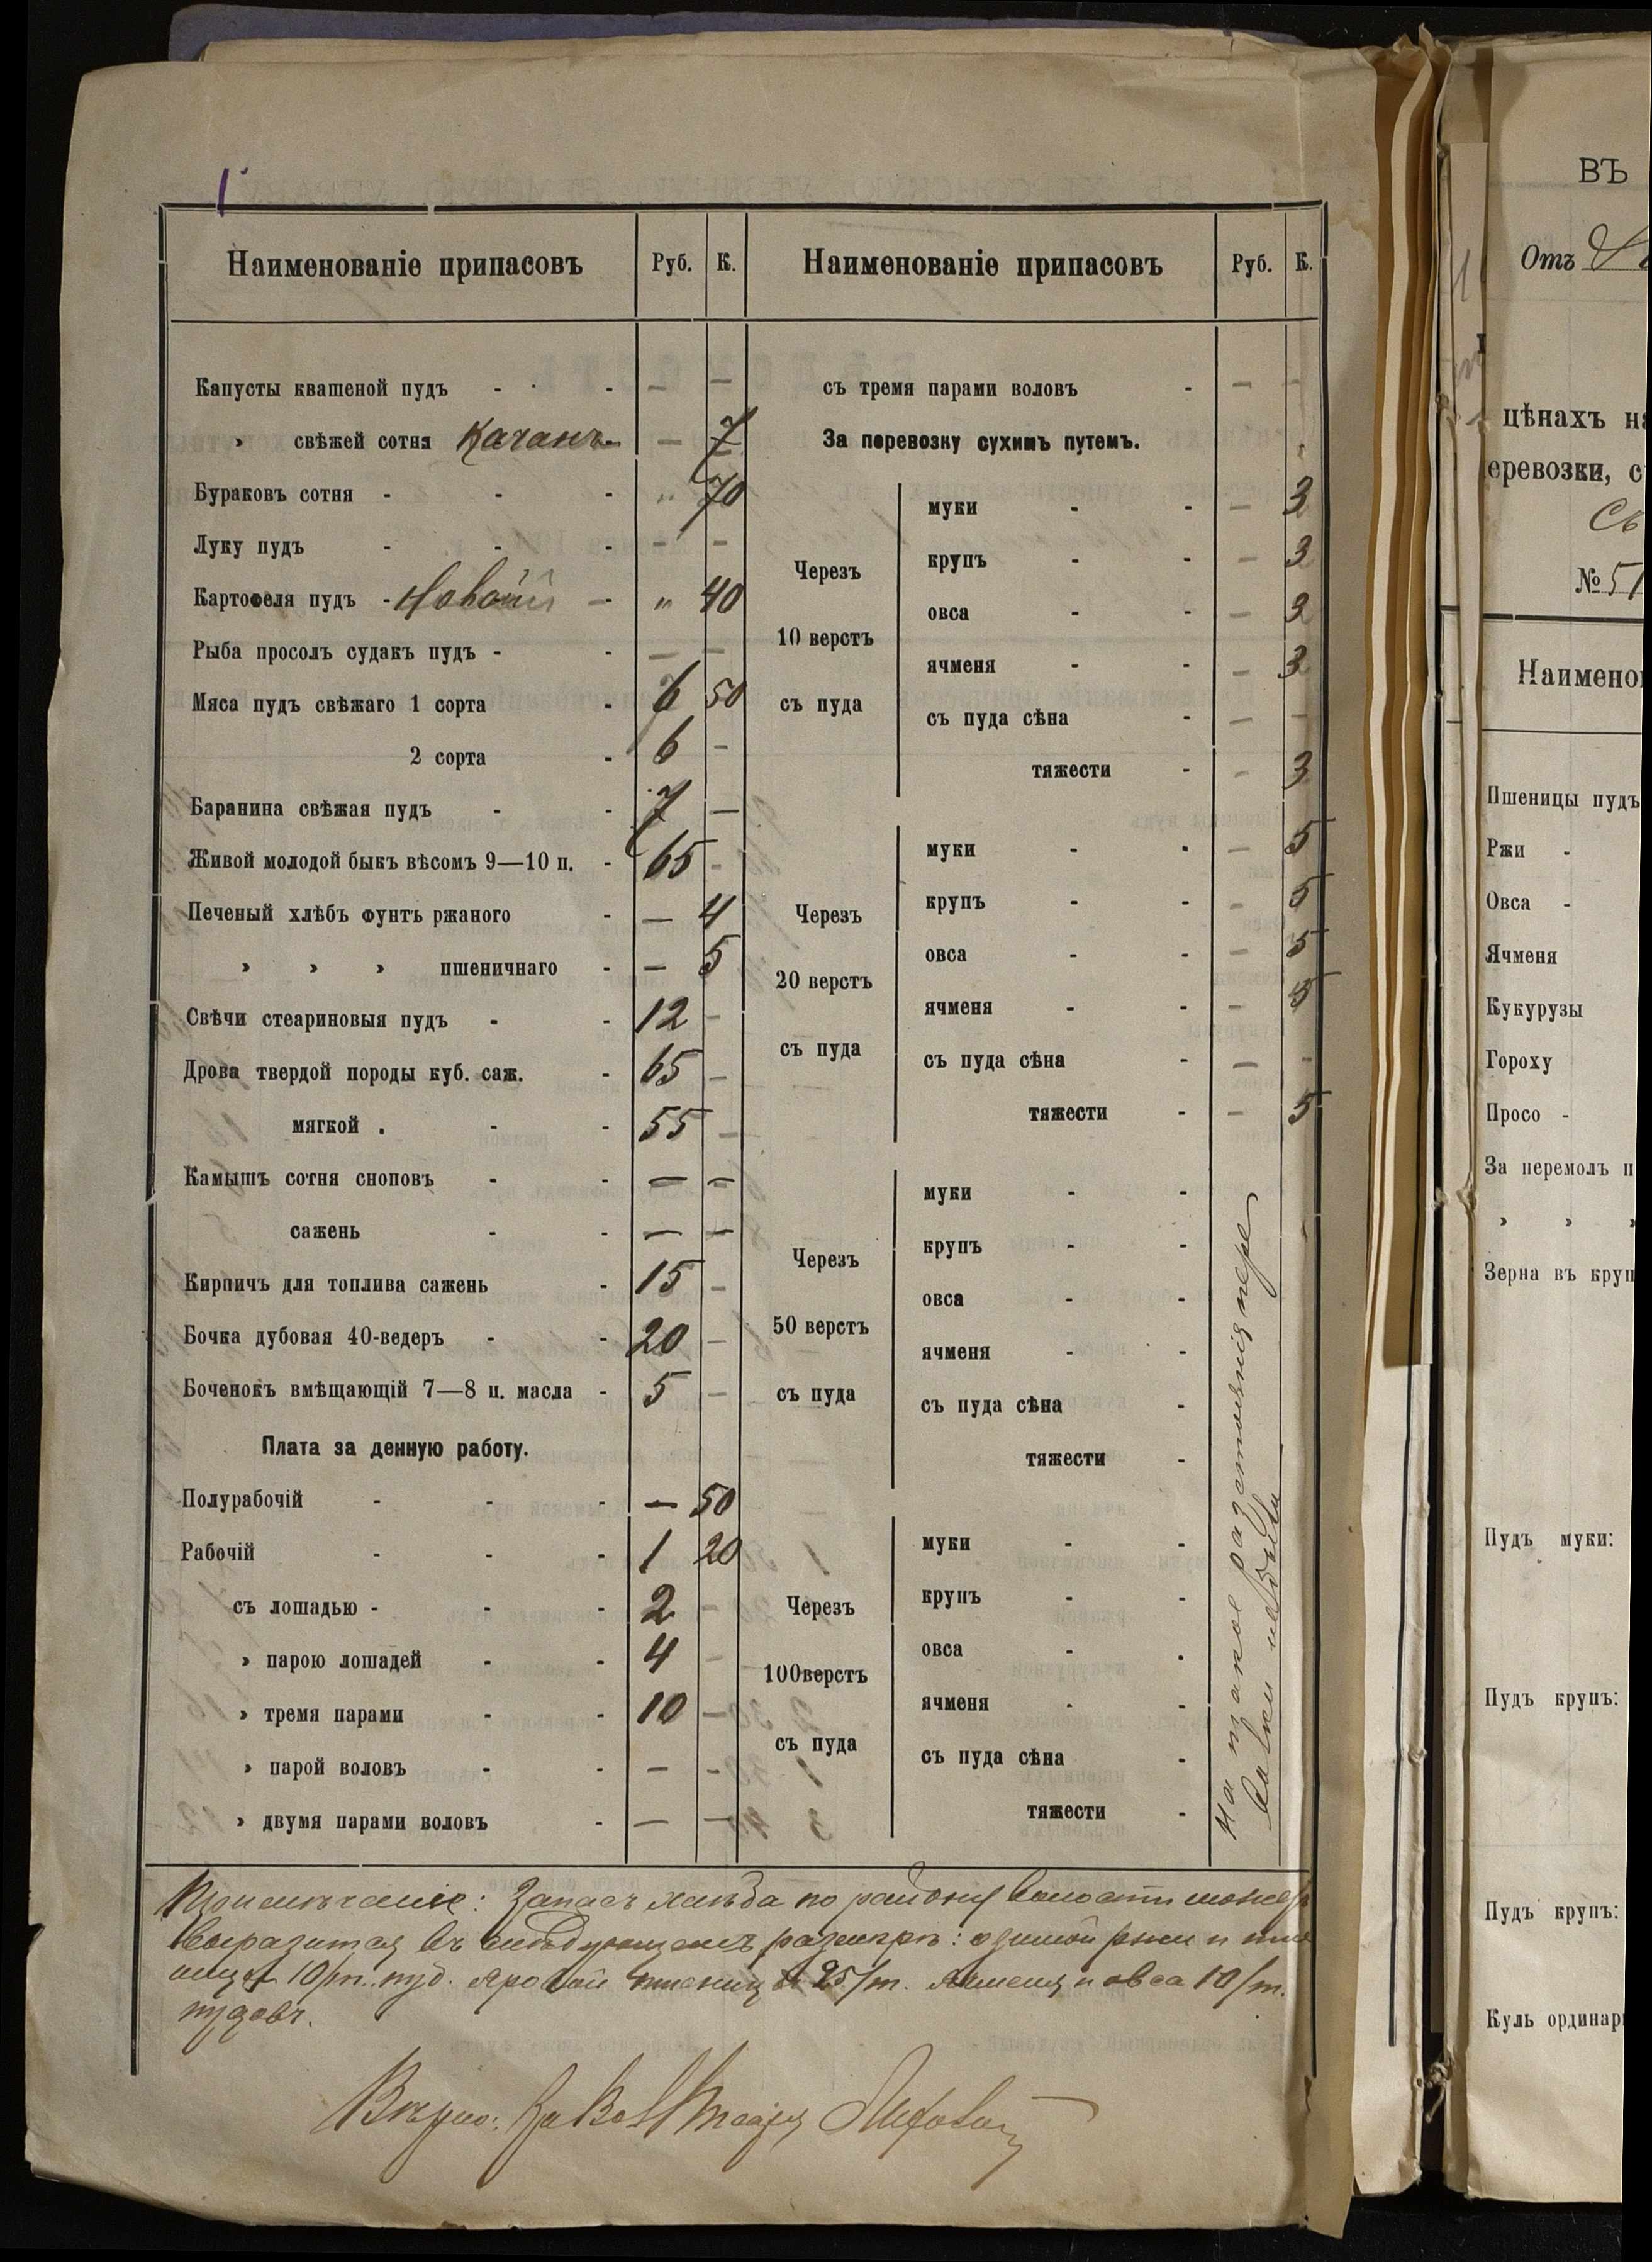 1
Наименованіе припасовъ Руб. К.
Капусты квашеной пудъ - - - — —
» свѣжей сотня Качанъ — 7
Бураковъ сотня - - - „ 70
Луку пудъ - - - — —
Картофеля пудъ - Новый - „ 40
Рыба просолъ судакъ пудъ - - — —
Мяса пудъ свѣжаго 1 сорта - 6 50
2 сорта - 6 —
Баранина свѣжая пудъ - - 7 —
Живой молодой быкъ вѣсомъ 9—10 п. - 65 -
Печеный хлѣбъ фунтъ ржаного - — 4
» » » пшеничнаго - — 5
Свѣчи стеариновыя пудъ - - 12 -
Дрова твердой породы куб. саж. - 65 -
мягкой . - - 55 —
Камышъ сотня сноповъ - - — —
сажень - - — —
Кирпичъ для топлива сажень - 15 -
Бочка дубовая 40-ведеръ - - 20 -
Боченокъ вмѣщающій 7—8 п. масла - 5 -
Плата за денную работу.
Полурабочій - - - — 50
Рабочій - - - 1 20
съ лошадью - - - 2 -
» парою лошадей - - 4 -
» тремя парами - - 10 —
» парой воловъ - - — -
» двумя парами воловъ - — —
Наименованіе припасовъ Руб. К.
съ тремя парами воловъ - — -
За перевозку сухимъ путемъ.
Черезъ 10 верстъ съ пуда
муки - - — 3
крупъ - - — 3
овса - - — 3
ячменя - - — 3
съ пуда сѣна - — -
тяжести - - 3
Черезъ 20 верстъ съ пуда
муки - - — 5
крупъ - - - 5
овса - - - 5
ячменя - - - 5
съ пуда сѣна - — -
тяжести - — 5
Черезъ 50 верстъ съ пуда
муки - -
крупъ - -
овса - -
ячменя - -
съ пуда сѣна -
тяжести -
Черезъ 100верстъ съ пуда
муки - -
крупъ - -
овса - -
ячменя - -
съ пуда сѣна -
тяжести -
на такое разстояніе пере
возки не было
Примѣчаніе: Запасъ хлѣба по району волости можетъ
выразится въ слѣдующемъ размѣрѣ: озимой ржи и пше
ницы 10/т. пуд. Яровой пшеницы 25/т. Ячменя и овса 10/т.
пудовъ.
Вѣрно: За
ВЪ
Отъ
цѣнахъ на
еревозки, с
Съ
№ 51
Наимено
Пшеницы пудъ
Ржи -
Овса -
Ячменя
Кукурузы
Гороху
Просо -
За перемолъ п
» » »
Зерна въ круп
Пудъ муки:
Пудъ крупъ:
Пудъ крупъ:
Куль ординар